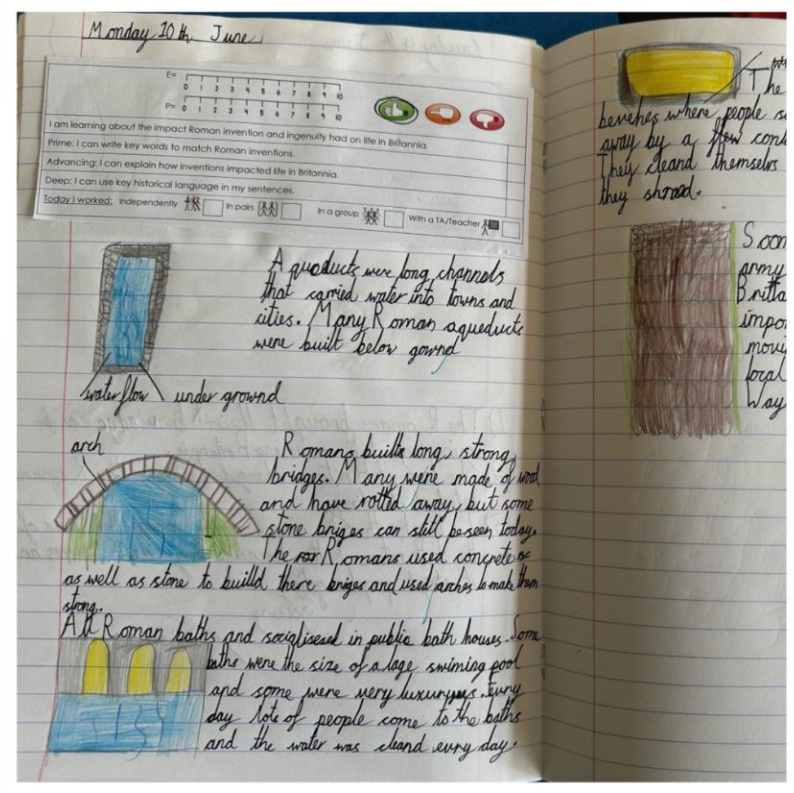 Monday 10th June
E= 0 1 2 3 4 5 6 7 8 9 10
P= 0 1 2 3 4 5 6 7 8 9 10
I am learning about the impact Roman invention and ingenuity had on life in Britannia.
Prime: I can write key words to match Roman inventions.
Advancing: I can explain how inventions impacted life in Britannia.
Deep: I can use key historical language in my sentences.
Today I worked: Independently In pairs In a group With a TA/Teacher
Aqueducts were long channels
that carried water into towns and
cities. Many Roman aqueducts
were built below gownd
waterflow under grownd
arch
Romans built long, strong
bridges. Many were made of wood
and have rotted away, but some
stone briges can still be seen today.
The Romans used concrete
as well as stone to builld there briges and used arches to make them
strong.
All Roman baths and socialisesed in public bath houses. Some
baths were the size of a lage swiming pool
and some were very luxuryus. Evry
day lots of people come to the baths
and the water was cleand evry day.
The
benches where people s
away by a flow con
They cleand themselvs
they shrood.
Soon
army
Britta
impo
movi
local
Way